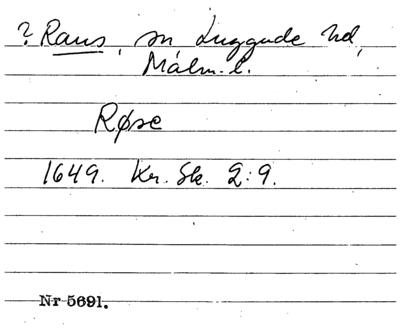 ? Raus, sn Luggude hd,
Malm. l.
Røse
1649. Kr. Sk. 2:9.
Nr 5691.